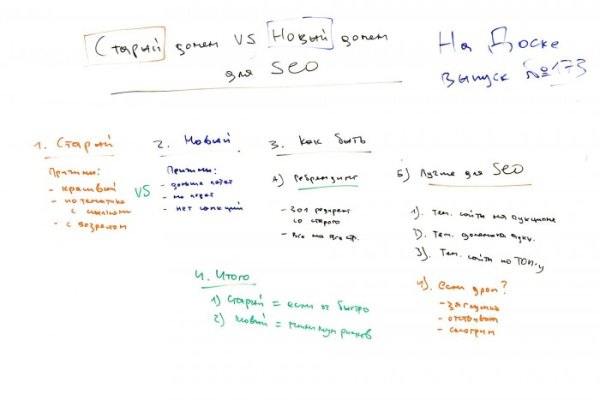 Старый домен VS Новый домен
для SEO
На Доске
выпуск №173
1. Старый
Причины:
- красивый
- по тематике
с ссылками
- с возрастом
VS
2. Новый
Причины:
- дольше
- не
- нет санкций
3. Как быть
А) Ребрендинг
- 301 редирект
со старого
- Все на все стр.
Б) Лучше для SEO
1). Тем. сайты на аукционе
2). Тем. домены аукц.
3). Тем. сайты по ТОП-у
4). Если дроп?
- заглушка
- отстоять
- смотрим
4. Итого
1) Старый = если ок быстро
2) Новый = минимум рисков